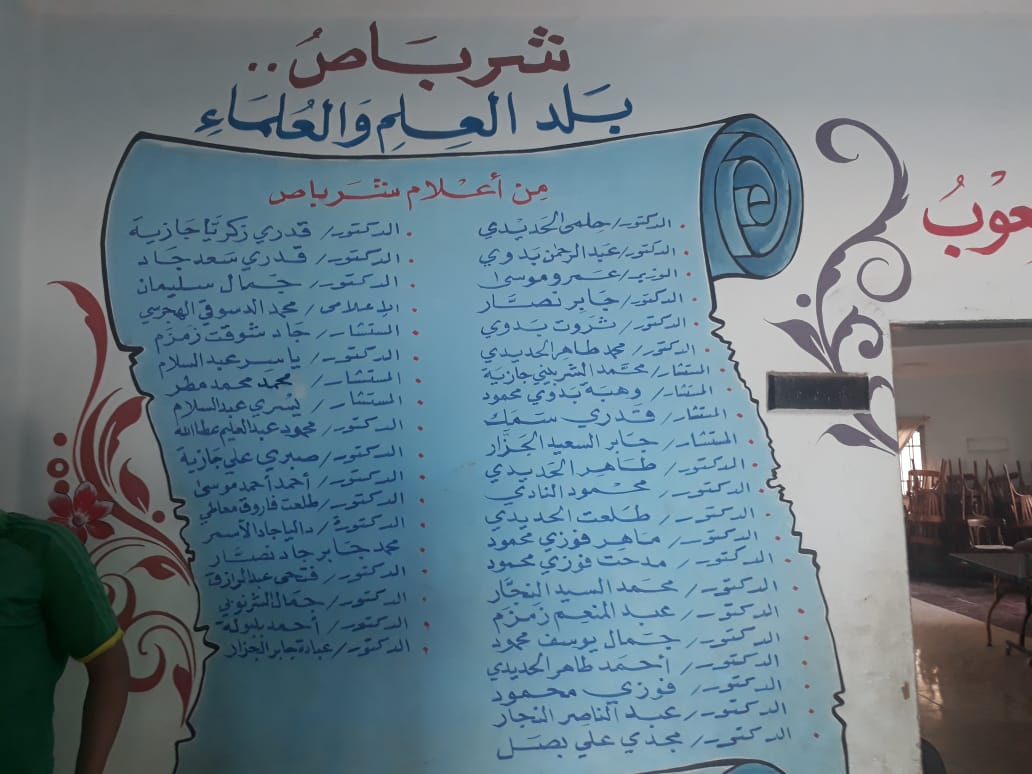 شربَاصُ..
بَلد العِلمِ وَالعُلمَاءِ
مِن أعْلام شَرباص
الدكتور/ حلمى الحَديدي
الدكتور/ عبد الرحمن بَدوي
الوزير/ عمرو موسىَ
الدكتور/ جَابر نَصَّار
الدكتور/ ثروَت بَدوي
الدكتور/ محمد طاهر الحديدي
المستشار/ محَمَّد الشربيني جازية
المستشار/ وهبَة بَدوي محمود
المستشار/ قَدري سَمَك
المستشار/ جَابر السعيد الجزَّار
الدكتور/ طَاهر الحَديدي
الدكتور/ محْمود النادي
الدكتور/ طَلعت الحديدي
الدكتور/ مَاهِر فوزي محمود
الدكتور/ مدحَت فوزي محمود
الدكتور/ محَمد السيد النجَّار
الدكتور/ عبد المنعِم زَمزم
الدكتور/ جمَال يوسف محمود
الدكتور/ أحمَد طاهر الحديدي
الدكتور/ فوزي محمود
الدكتور/ عَبد الناصر النجار
الدكتور/ مجدي علي بصَل
الدكتور/ قدري زكريَّا جَازية
الدكتور/ قَدري سَعد جَاد
الدكتور/ جمَال سليمان
الإعلامى/ محمد الدسوقي الهجرسي
المستشار/ جَاد شوقت زمزم
الدكتور/ ياسر عبد السلام
المستشار/ محمد محمد مطر
المستشار/ يُسْري عبد السلام
الدكتور/ محمود عبد العليم عطا الله
الدكتور/ صبري علي جازية
الدكتور/ أحمد أحمد موسىَ
الدكتور/ طلعت فاروق معاطي
الدكتورة/ داليا جاد الأسمر
الدكتور/ محمد جَابر جاد نصَّار
الدكتور/ فتحى عبد الرازق
الدكتور/ جمَال الشرنوبي
الدكتور/ أحمد بلبولة
الدكتور/ عبادة جابر الجزار